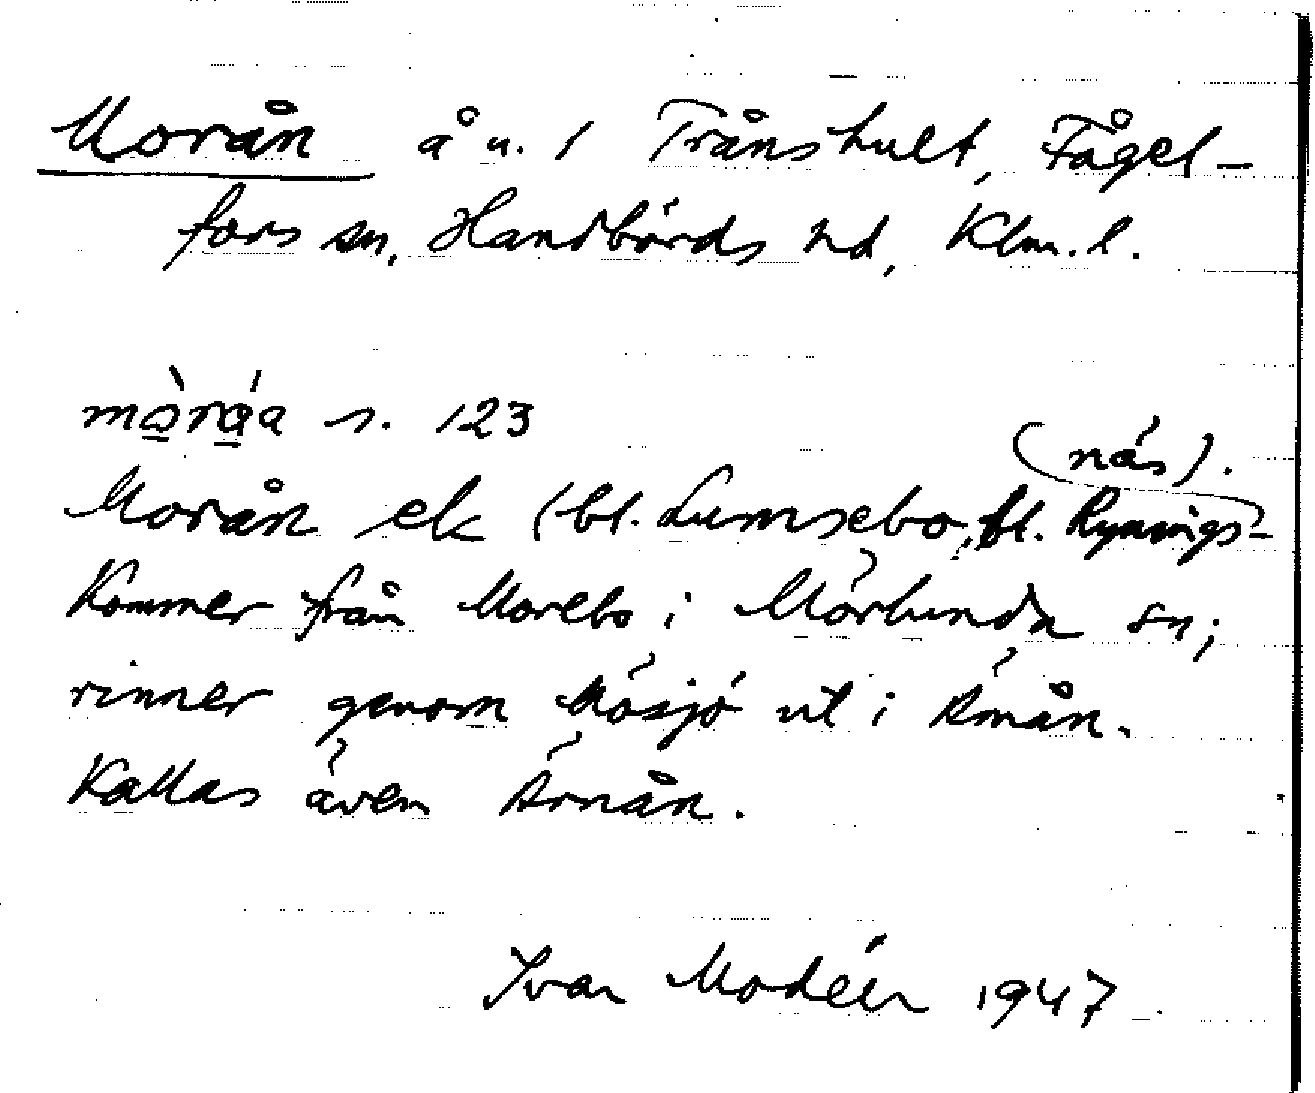 Morån å u. 1 Trånshult, Fågel-
fors sn, Handbörds hd, Klm. l.
mọ̀rạ́a s. 123
(näs).
Morån ek (bl. Lumsebo, fl. Rynings-
Kommer från Morebo i Mörlunda sn;
rinner genom Mösjö ut i Ämån.
Kallas även Ärnån.
Ivar Modéer 1947